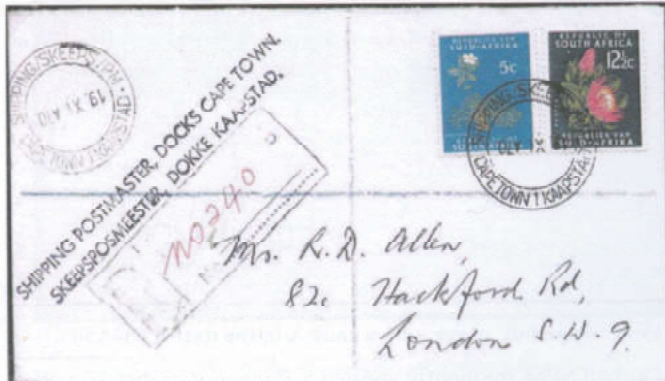 SHIPPING/SKEEPS/PM
19 XI
CAPE TOWN 1 KAAPSTAD
SHIPPING POSTMASTER, DOCKS CAPE TOWN.
SKEEPSPOSMEESTER, DOKKE KAAPSTAD.
R
NO240
REPUBLIEK VAN
SUID-AFRIKA
5c
REPUBLIC OF
SOUTH AFRICA
12½c
REPUBLIEK VAN
SUID-AFRIKA
CAPE TOWN 1 KAAPSTAD
R. D. Allen,
82c Hackford Rd,
London S.W.9.